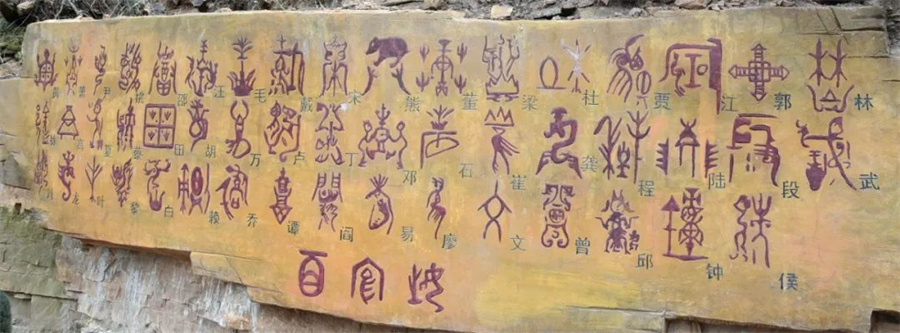 尹 姚 邵 汪 毛 戴 宋 熊 董 梁 杜 贾 江 郭 林
高 夏 秦 田 胡 万 卢 丁 邓 石 崔 龚 程 陆 段 武
龙 叶 黎 白 赖 乔 谭 阎 易 廖 文 曾 邱 钟 侯
百家姓